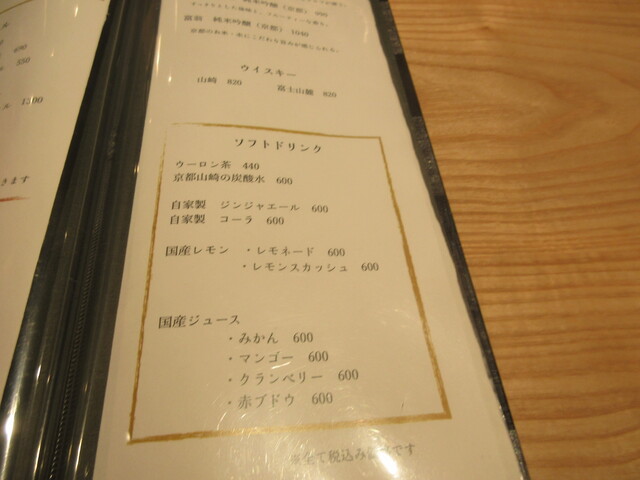 純米吟醸（京都） 990
富翁 純米吟醸（京都） 1040
京都のお米・水にこだわり旨みが感じられる。
ウイスキー
山崎 820 富士山麓 820
ソフトドリンク
ウーロン茶 440
京都山崎の炭酸水 600
自家製 ジンジャエール 600
自家製 コーラ 600
国産レモン ・レモネード 600
・レモンスカッシュ 600
国産ジュース
・みかん 600
・マンゴー 600
・クランベリー 600
・赤ブドウ 600
※全て税込み です
690
550
ル 1200
きます